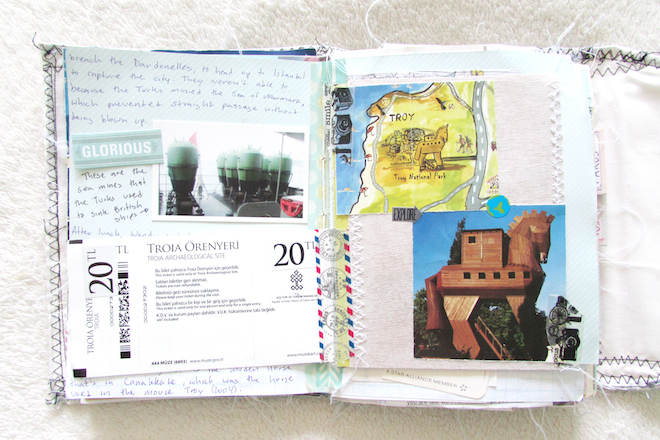 breach the Dardonelles, to head up to Istanbul
to capture the city. They weren't able to
because the Turks mined the Sea of Marmara,
which prevented straight passage without
being blown up.
GLORIOUS
These are the
sea mines that
the Turks used
to sink British
ships
After lunch,
20 TL
TROIA ÖRENYE
TROIA ÖRENYERİ
TROIA ARCHAEOLOGICAL SITE
20 TL
Bu bilet yalnızca Troia Örenyeri için geçerlidir.
This ticket is valid only at Troia Archaeological Site.
Satılan biletler geri alınmaz.
Tickets are non-refundable.
Biletinizi gezi süresince saklayınız.
Please keep your ticket during the visit
Bu bilet yalnızca bir kişi ve bir giriş için geçerlidir.
This ticket is valid only for one person and only for a single entry
K.D.V. ve kurum payları dahildir.
444 MÜZE (6893)
www.muze.gov.tr
the modest horse
that's in Canakkale, which was the horse
used in the movie Troy (2004).
smile
TROY
Troy National Park
EXPLORE
A STAR ALLIANCE MEMBER